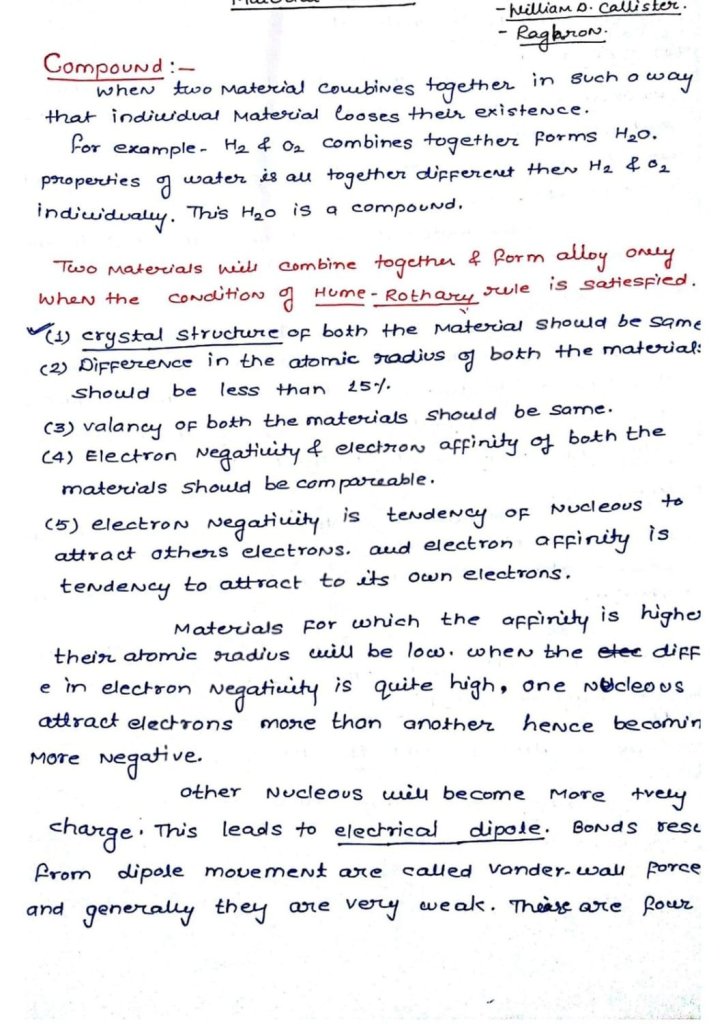 - William D. Callister.
- Raghron.
Compound :-
When two Material combines together in such a way
that individual Material looses their existence.
for example - H2 & O2 combines together forms H2O.
properties of water is all together different then H2 & O2
individually. This H2O is a compound.
Two Materials will combine together & form alloy only
when the condition of Hume-Rothary rule is satiespied.
(1) crystal structure of both the Material should be same
(2) Difference in the atomic radius of both the material
should be less than 15%.
(3) valancy of both the materials should be same.
(4) Electron Negativity & electron affinity of both the
materials should be compareable.
(5) electron negativity is tendency of Nucleous to
attract others electrons. and electron affinity is
tendency to attract to its own electrons.
Materials for which the affinity is highe
their atomic radius will be low. when the diff
e in electron negativity is quite high, one Nucleous
attract electrons more than another hence becomin
More Negative.
other Nucleous will become More +vely
charge. This leads to electrical dipole. Bonds resu
from dipole movement are called vander-wall force
and generally they are very weak. These are four